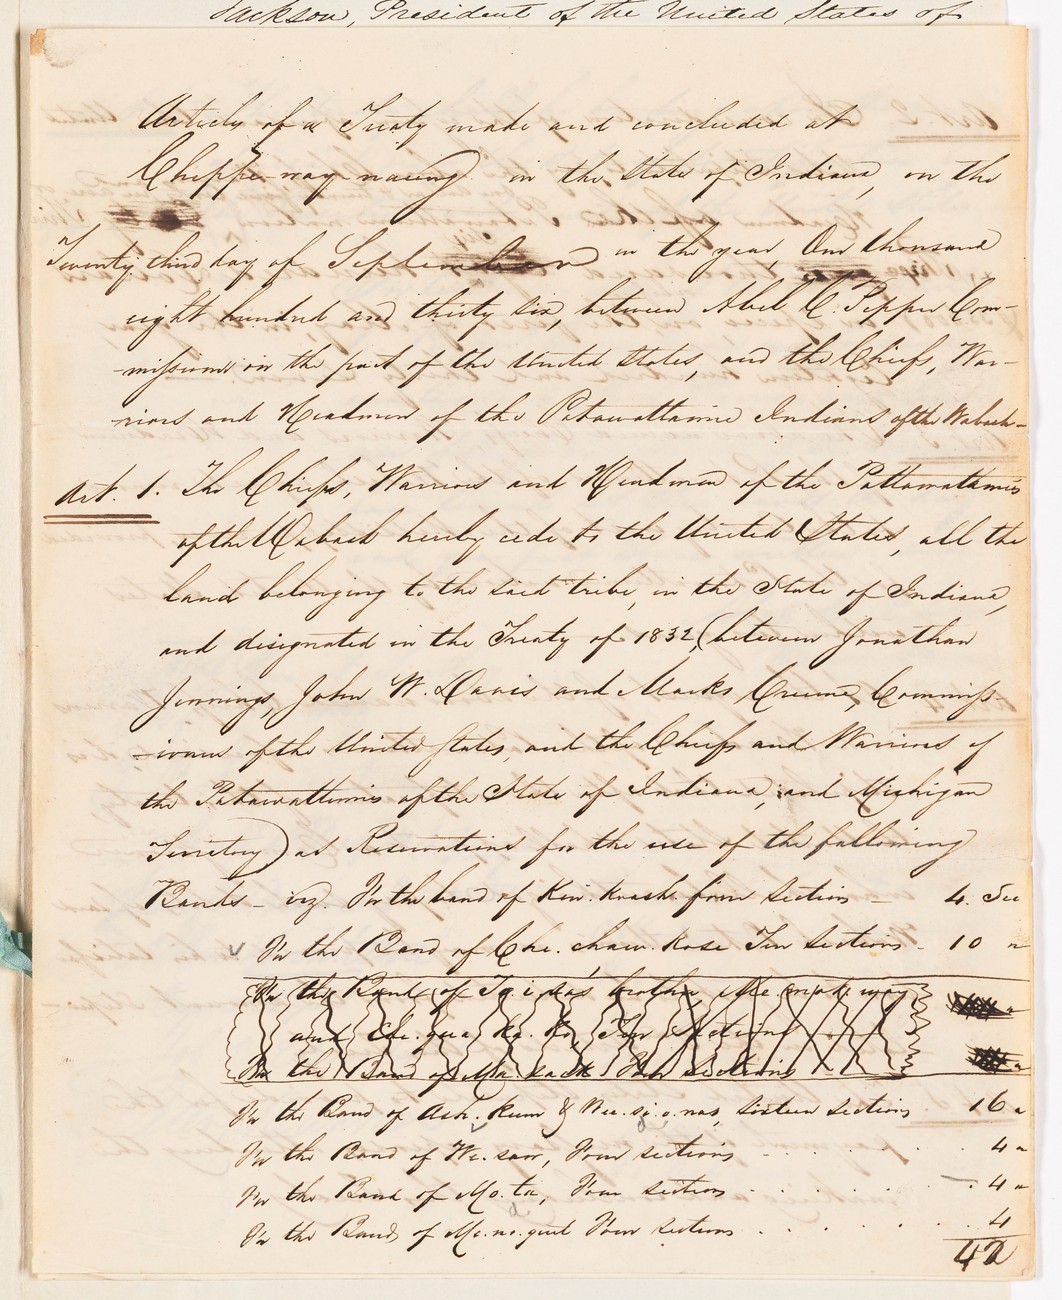 Jackson, President of the United States of
Articles of a Treaty made and concluded at
Chippe-way-naung in the State of Indiana, on the
Twenty third day of September in the year, One thousand
eight hundred and thirty six, between Abel C. Pepper Com-
-missioner on the part of the United States, and the Chiefs, War-
-riors and Headmen of the Patawattamie Indians of the Wabash-
Art. 1. The Chiefs, Warriors and Headmen of the Pattawattamies
of the Wabash hereby cede to the United States, all the
land belonging to the said tribe, in the State of Indiana,
and designated in the Treaty of 1832, (between Jonathan
Jennings, John W. Davis and Marks Crume, Commiss-
-ioners of the United States, and the Chiefs and Warriors of
the Patawattamies of the State of Indiana, and Michigan
Territory) as Reservations for the use of the following
Bands - viz. For the band of Kin. krash. four sections - 4. Sec
For the Band of Che. chaw. kose Ten sections - 10 "
For the Band of brother, Me mot way,
and Che. qua. ka. ko, Ten sections
For the Band of Ma. sack Four sections
For the Band of Ash. kum & Wee. si. o. nas, sixteen sections 16 "
For the Band of We. saw, Four sections - . . . . . 4 "
For the Band of Mo. ta, Four sections . . . . . - . 4 "
For the Band of Me. no. quet Four sections . . . . . . 4
42